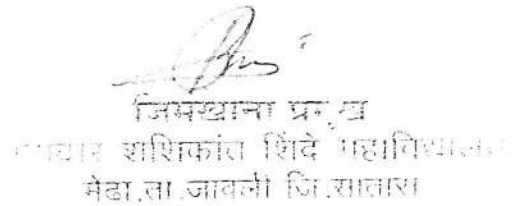 जिमखाना प्रमुख
शशिकांत शिंदे महाविद्यालय
मेढा.ता.जावली जि.सातारा